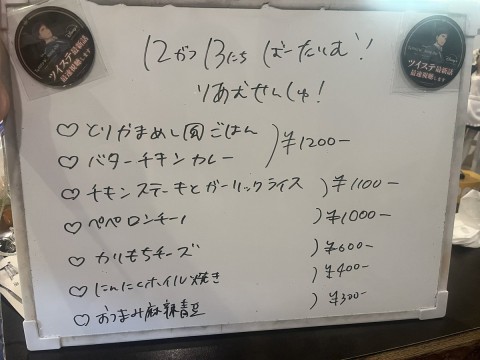 ツイステ最新話
最速視聴します
ツイステ最新話
最速視聴します
12がつ13にち ばーたいむ!
りあむせんしゅ!
♡とりかまめし風ごはん
♡バターチキンカレー
)¥1200-
♡チキンステーキとガーリックライス )¥1100-
♡ペペロンチーノ )¥1000-
♡カリもちチーズ )¥600-
♡にんにくホイル焼き )¥400-
♡おつまみ麻辣青豆 )¥300-